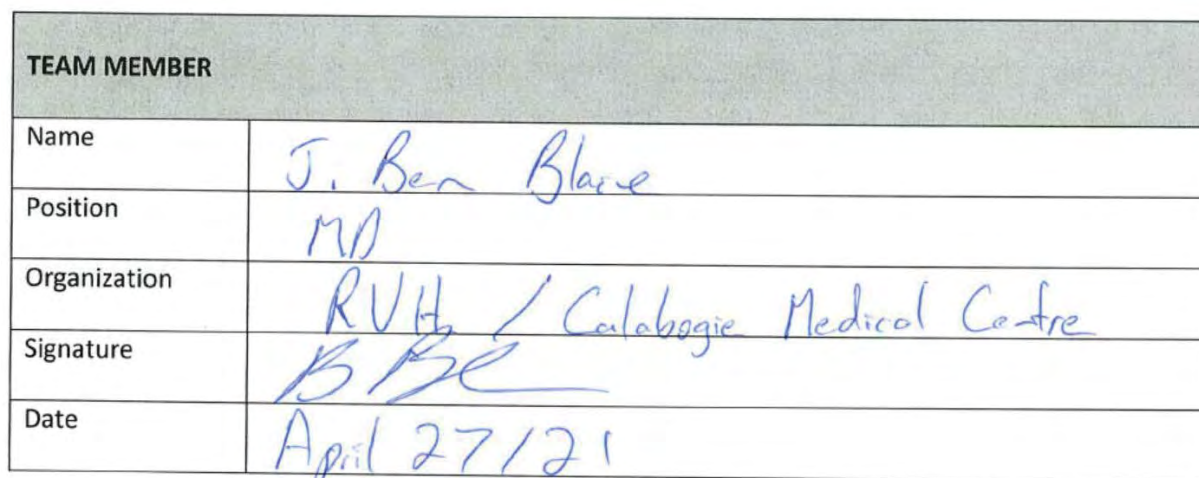 TEAM MEMBER
Name J. Ben Blaine
Position MD
Organization RVH / Calabogie Medical Centre
Signature
Date April 27/21